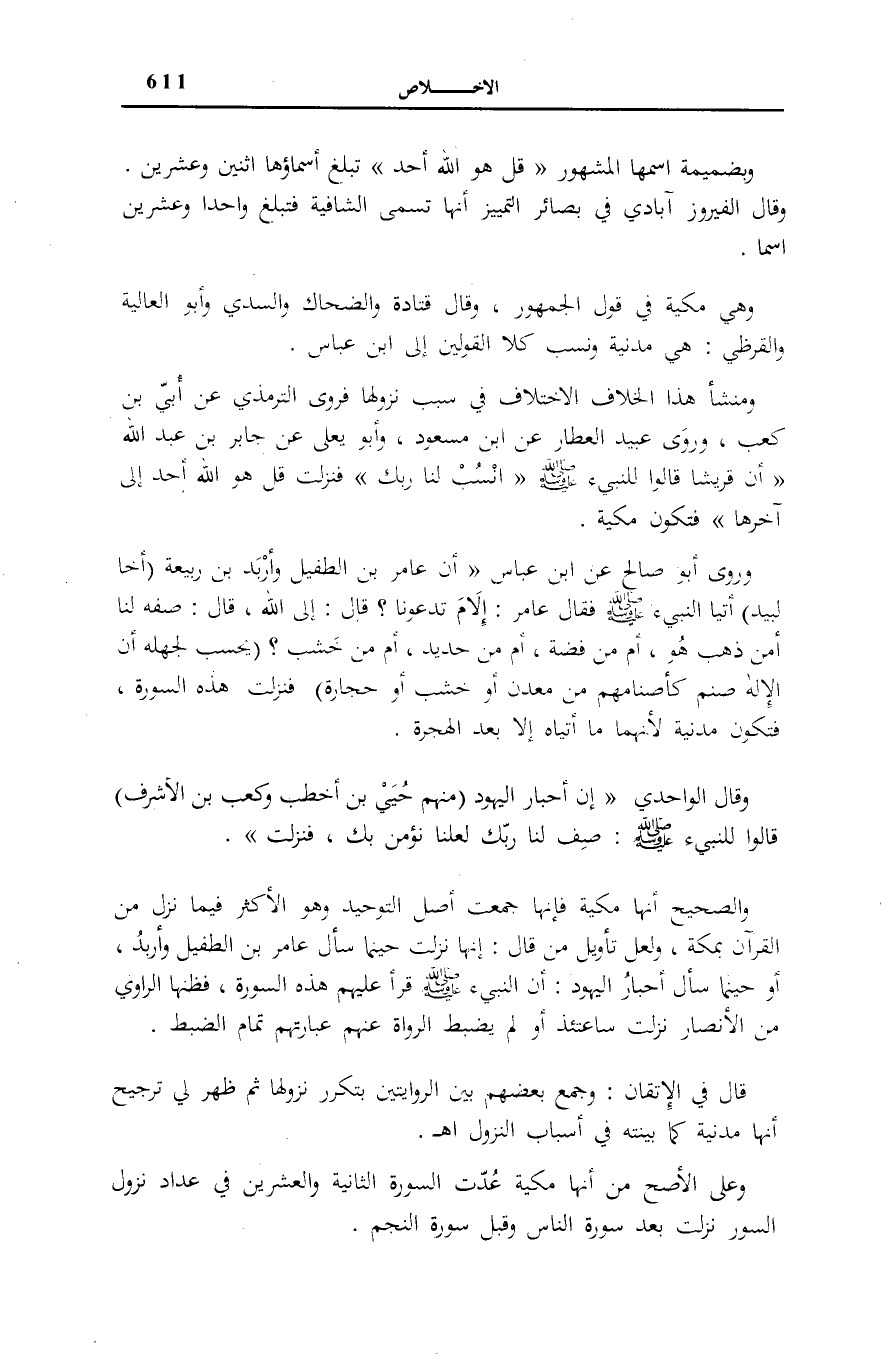 الاخــــــلاص 611
وبضميمة اسمها المشهور « قل هو الله أحد » تبلغ أسماؤها اثنين وعشرين .
وقال الفيروز آبادي في بصائر التمييز أنها تسمى الشافية فتبلغ واحدا وعشرين
اسما .
وهي مكية في قول الجمهور ، وقال قتادة والضحاك والسدي وأبو العالية
والقرظي : هي مدنية ونسب كلا القولين إلى ابن عباس .
ومنشأ هذا الخلاف الاختلاف في سبب نزولها فروى الترمذي عن أُبيّ بن
كعب ، وروَى عبيد العطار عن ابن مسعود ، وأبو يعلى عن جابر بن عبد الله
« أن قريشا قالوا للنبيء ﷺ « انْسُبْ لنا ربك » فنزلت قل هو الله أحد إلى
آخرها » فتكون مكية .
وروى أبو صالح عن ابن عباس « أن عامر بن الطفيل وأَرْبَد بن ربيعة (أخا
لبيد) أتيا النبيء ﷺ فقال عامر : إِلَامَ تدعونا ؟ قال : إلى الله ، قال : صفه لنا
أمن ذهب هُو ، أم من فضة ، أم من حديد ، أم من خَشب ؟ (يحسب لجهله أن
الإِلٰه صنم كأصنامهم من معدن أو خشب أو حجارة) فنزلت هذه السورة ،
فتكون مدنية لأنهما ما أتياه إلا بعد الهجرة .
وقال الواحدي « إن أحبار اليهود (منهم حُيَيْ بن أخطب وكعب بن الأشرف)
قالوا للنبيء ﷺ : صِف لنا ربّك لعلنا نؤمن بك ، فنزلت » .
والصحيح أنها مكية فإنها جمعت أصل التوحيد وهو الأكثر فيما نزل من
القرآن بمكة ، ولعل تأويل من قال : إنها نزلت حينما سأل عامر بن الطفيل وأربدُ ،
أو حينما سأل أحبارُ اليهود : أن النبيء ﷺ قرأ عليهم هذه السورة ، فظنها الراوي
من الأنصار نزلت ساعتئذ أو لم يضبط الرواة عنهم عبارتهم تمام الضبط .
قال في الإِتقان : وجمع بعضهم بين الروايتين بتكرر نزولها ثم ظهر لي ترجيح
أنها مدنية كما بينته في أسباب النزول اهـ .
وعلى الأصح من أنها مكية عُدّت السورة الثانية والعشرين في عداد نزول
السور نزلت بعد سورة الناس وقبل سورة النجم .